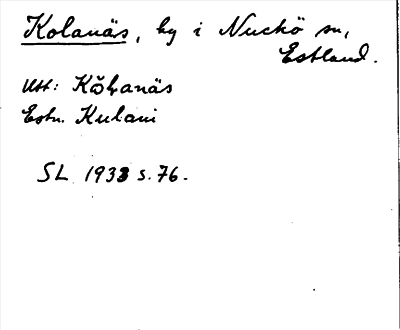 Kolanäs, by i Nuckö sn,
Estland.
Utt: Kålanäs
Estn. Kulani
SL 1933 s. 76.